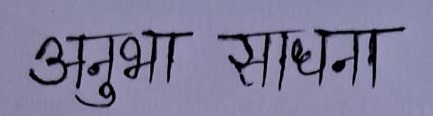 अनुभा साधना